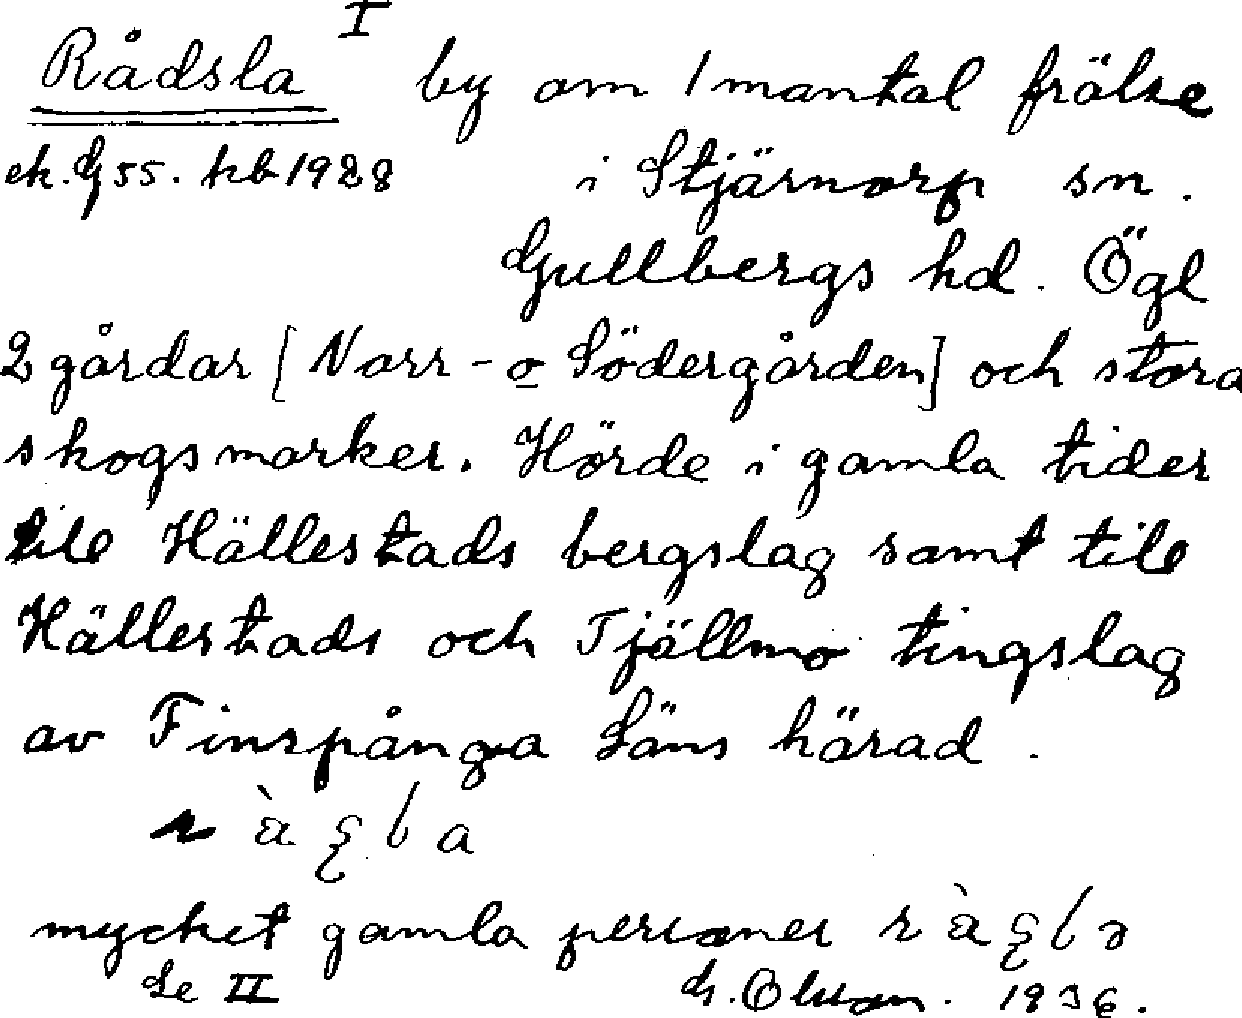 Rådsla I by om 1 mantal frälse
ek. G 55. kb 1928 i Stjärnorp sn.
Gullbergs hd. Ögl
2 gårdar [Norr- o Södergården] och stora
skogsmarker. Hörde i gamla tider
till Hällestads bergslag samt till
Hällestads och Tjällmo tingslag
av Finspånga Läns härad.
mycket gamla personer
Se II G. Olson. 1936.